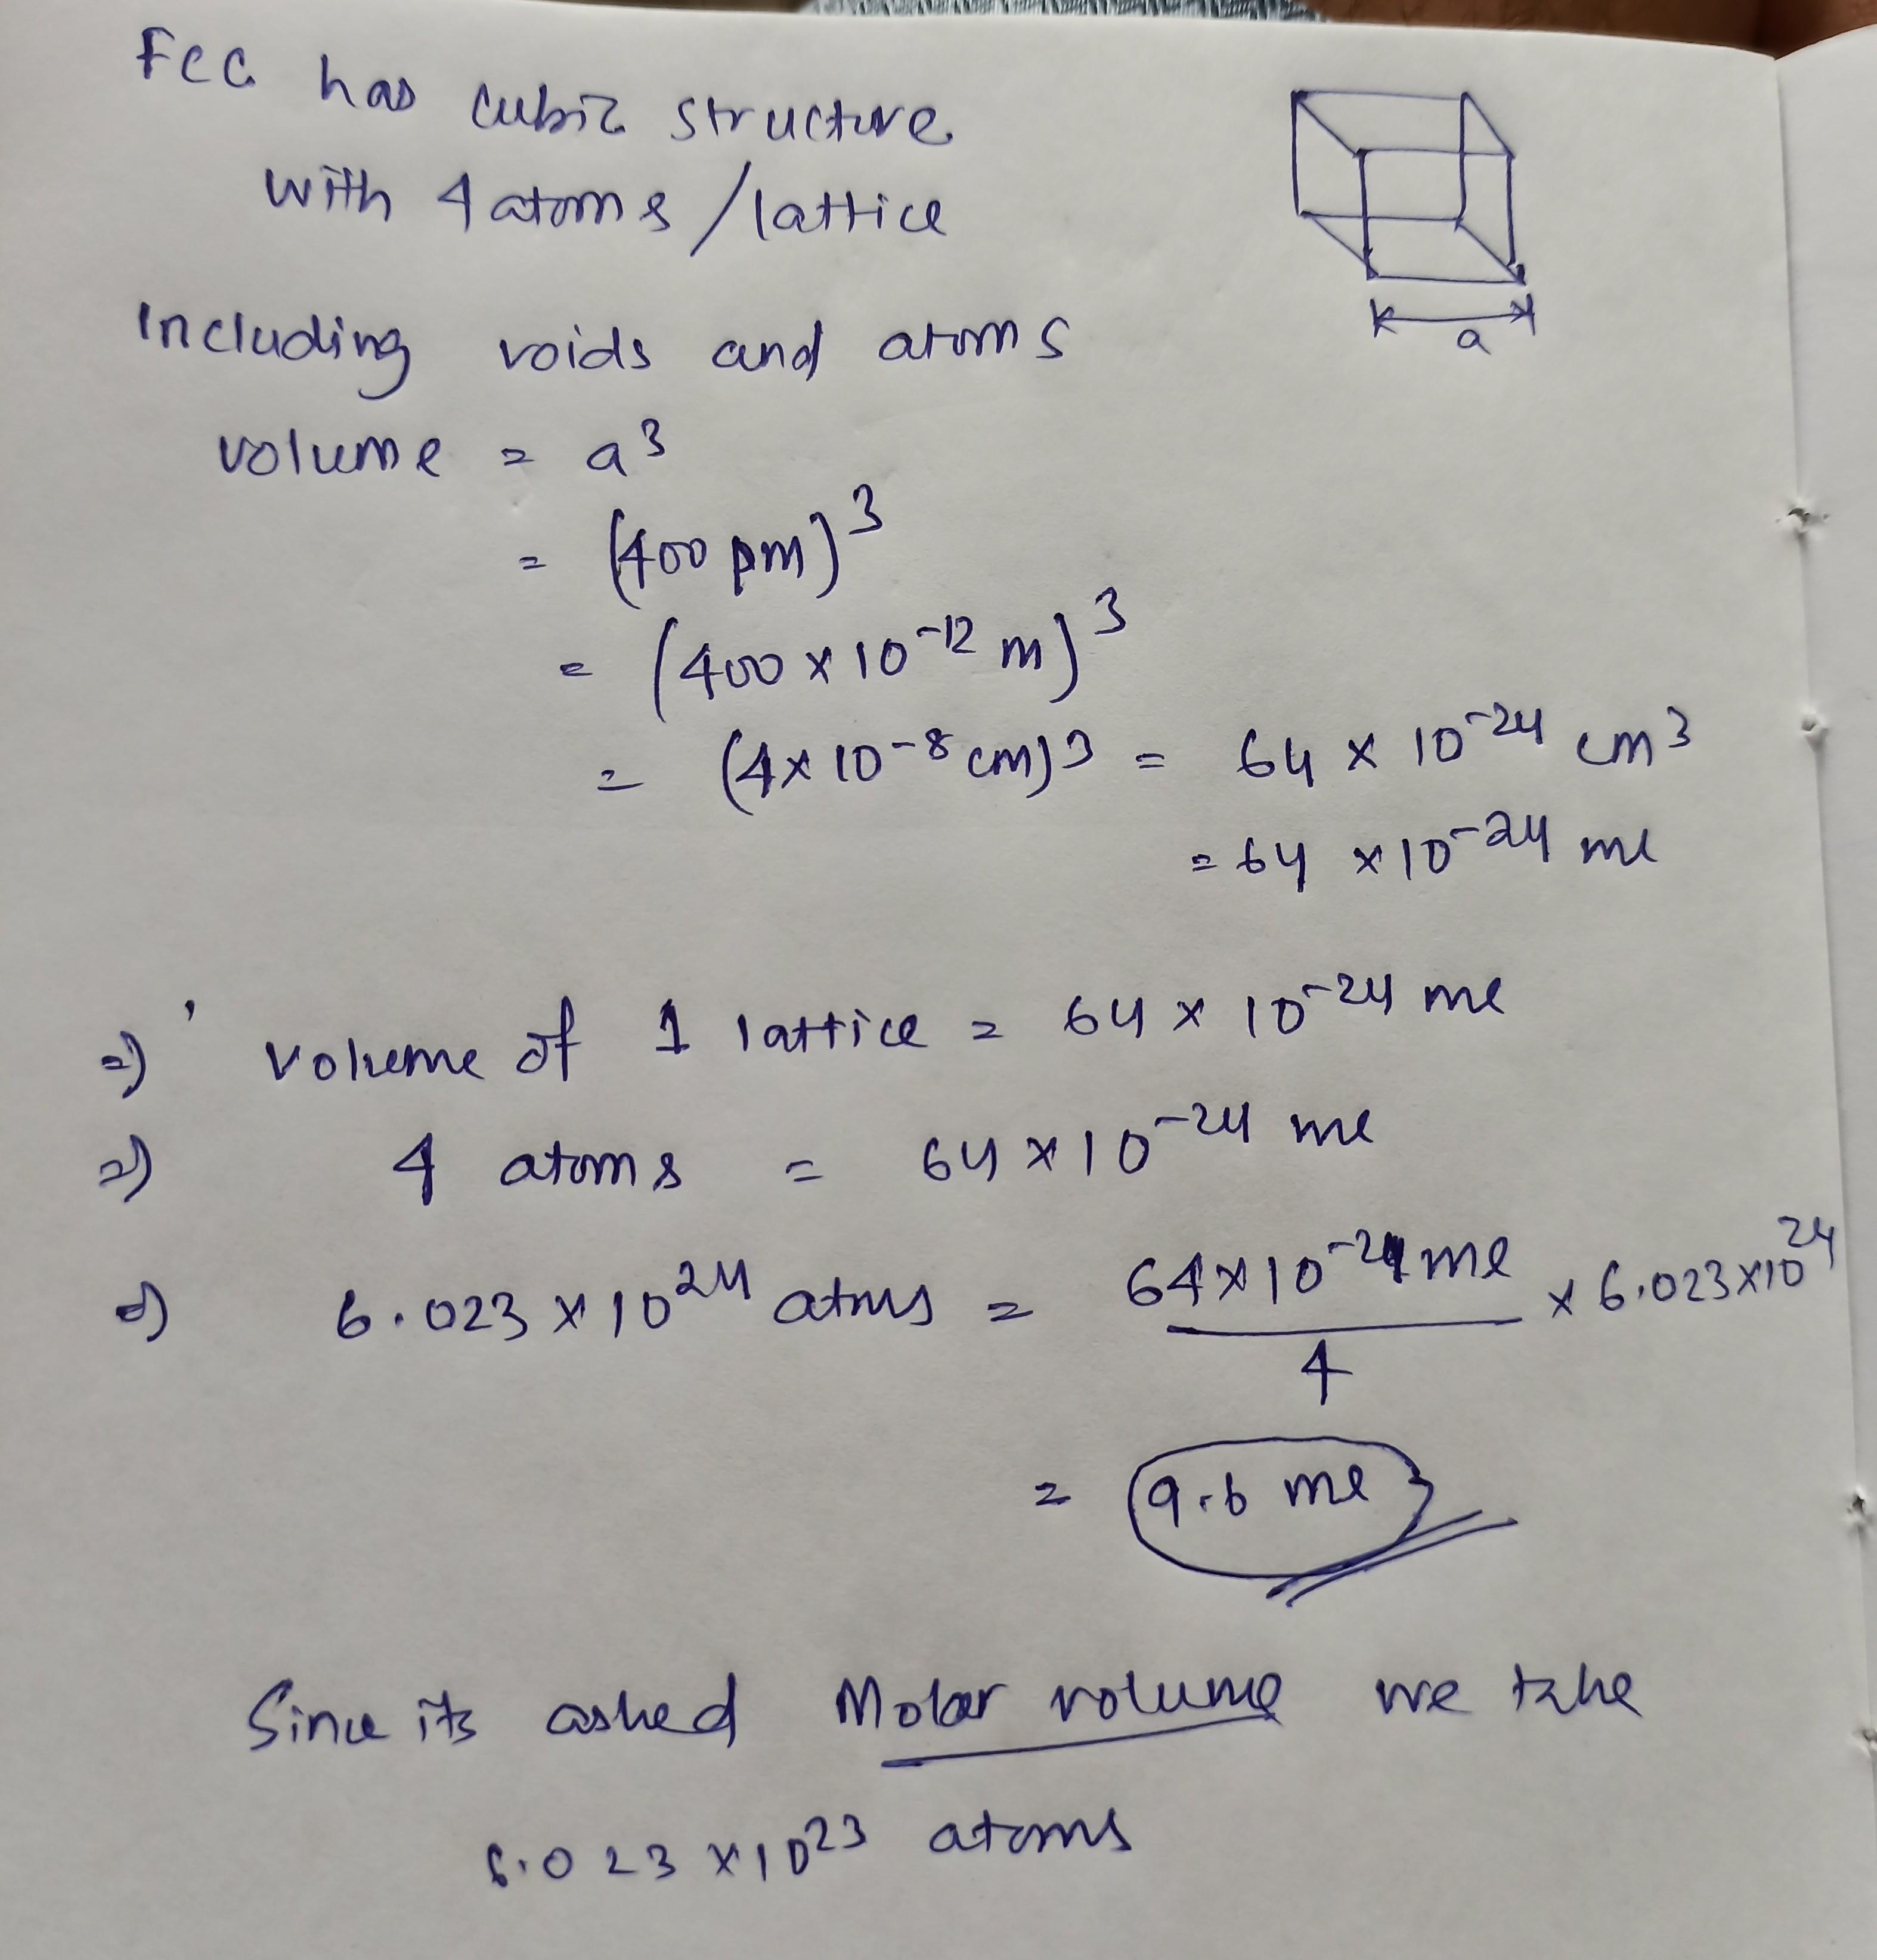 Fcc has cubic structure
with 4 atoms / lattice
a
Including voids and atoms
volume = a³
= (400 pm)³
= (400 × 10⁻¹² m)³
= (4 × 10⁻⁸ cm)³ = 64 × 10⁻²⁴ cm³
= 64 × 10⁻²⁴ ml
⇒ volume of 1 lattice = 64 × 10⁻²⁴ ml
⇒ 4 atoms = 64 × 10⁻²⁴ ml
⇒ 6.023 × 10²⁴ atms = 64 × 10⁻²⁴ ml / 4 × 6.023 × 10²⁴
= 9.6 ml
Since its asked Molar volume we take
6.023 × 10²³ atoms